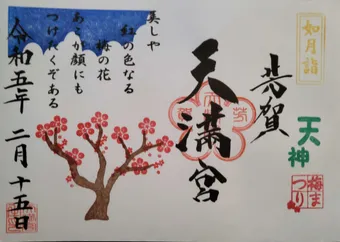 如月詣
芳賀
天満宮
天神
梅まつり
美しや
紅の色なる
梅の花
あこが顔にも
つけたくぞある
令和五年 二月十五日